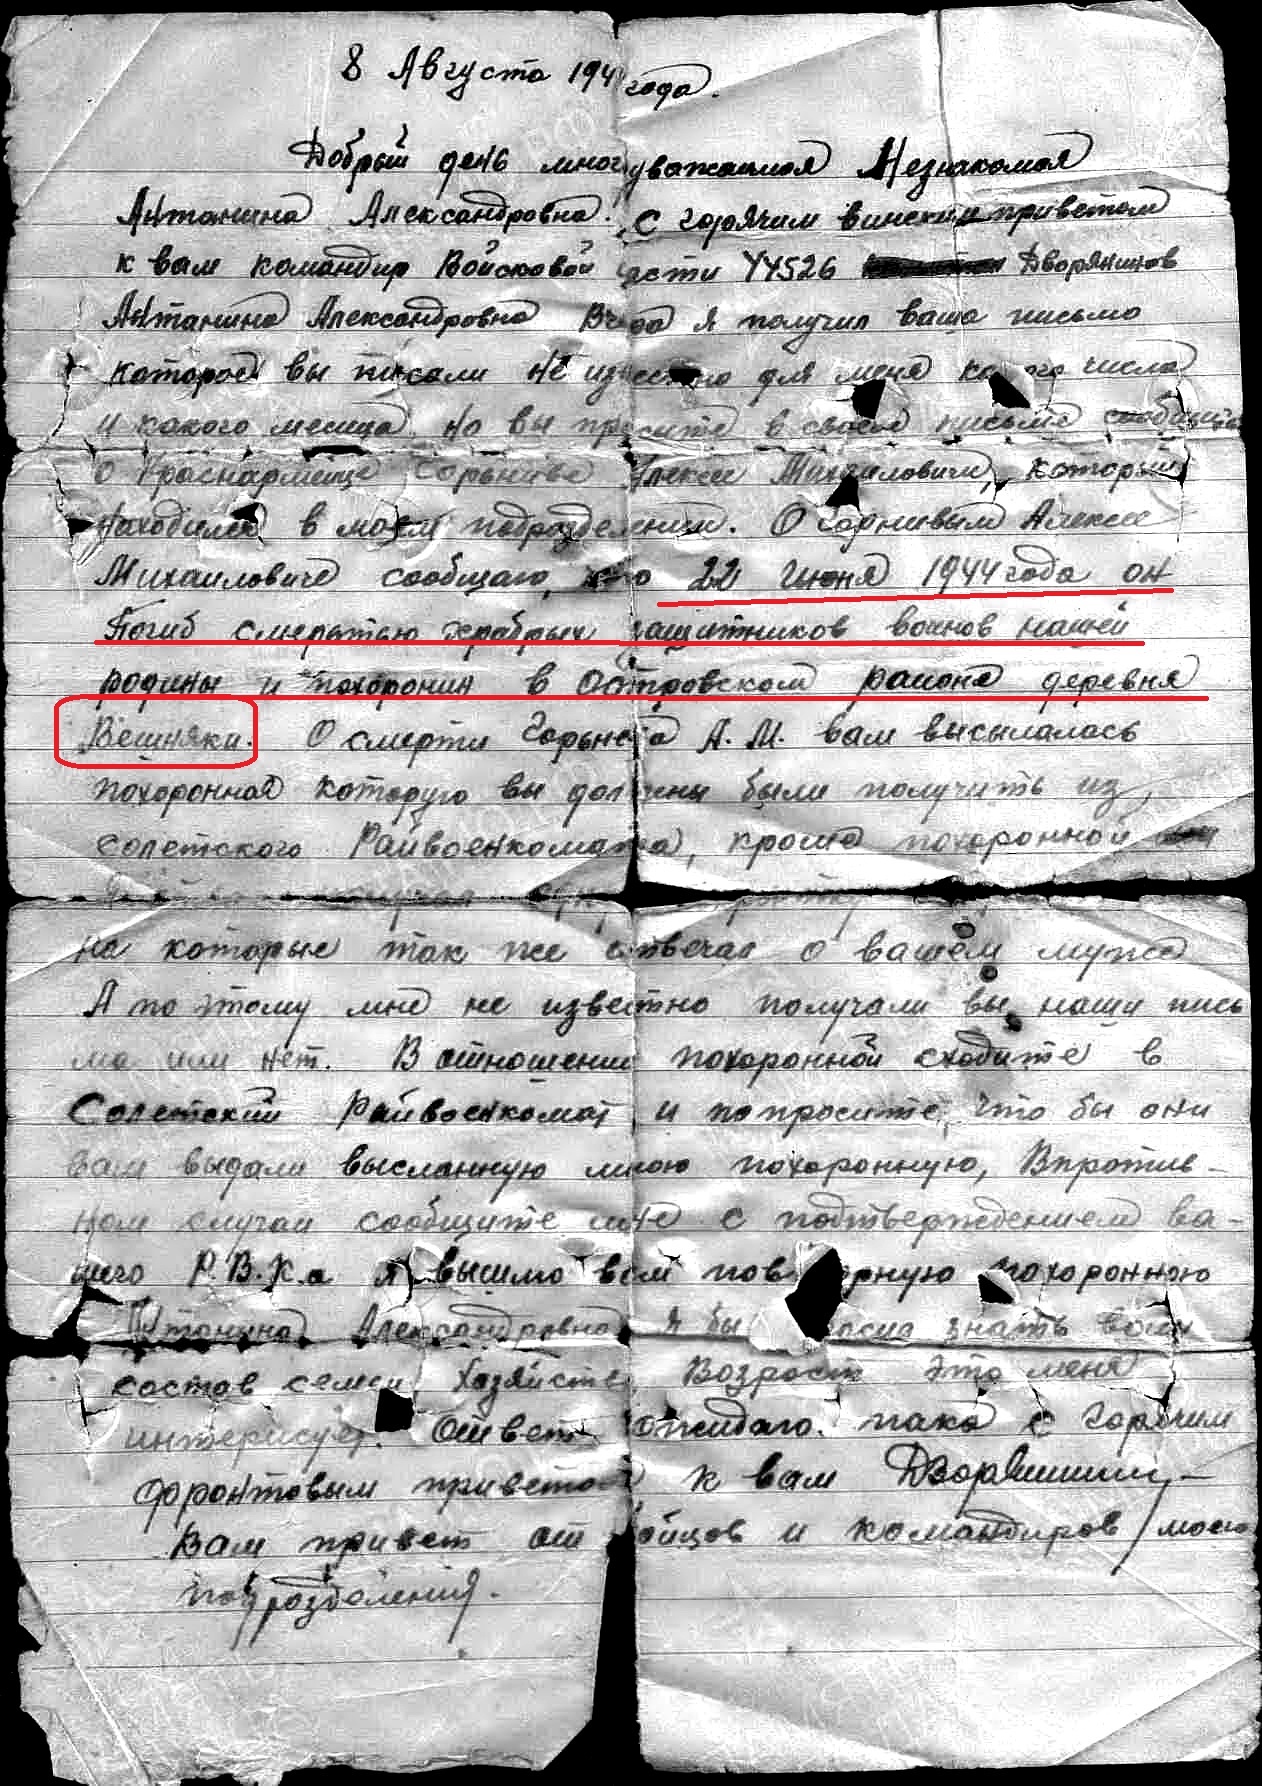 8 Августа 194 года.
Добрый день много уважаимая Незнакомая
Антанина Александровна. С горячим воиским приветом
к вам командир Войсковой части 44526 Дворянинов
Антанина Александровна Вчера я получил ваша письмо
которое вы писали не известно для меня какого числа
и какого месяца. Но вы просите в своем письме сообщить
о Краснармейце Горынцеве Алексее Михаиловичи, который
находился в моем подразделении. О Алексее
Михаиловиче сообщаю, что 22 июня 1944 года он
Погиб смертью храбрых защитников воинов нашей
родины и похоронин в Островском районе деревня
Вешняки. О смерти А.М. вам высылалась
похоронная которую вы должны были получить из
солетского Райвоенкомата, кроме похоронной
получал
на которые так же отвечал о вашем муже
А по этому мне не известно получали вы наши пись
ма или нет. В отношении похоронной сходите в
Солетский Райвоенкомат и попросите, что бы они
вам выдали высланную мною похоронную, Впротив-
ном случаи сообщите мне с подтверждением ва-
шего Р.В.К.а я вышлю вам повторную похоронною
Антанина Александровна я бы просил знать ваш
состав семеи Хозяйство Возрост это меня
интерисует. Ответ ожидаю. пака с горячим
фронтовым приветом к вам Дворянинов
Вам привет от бойцов и командиров моего
подразделения.